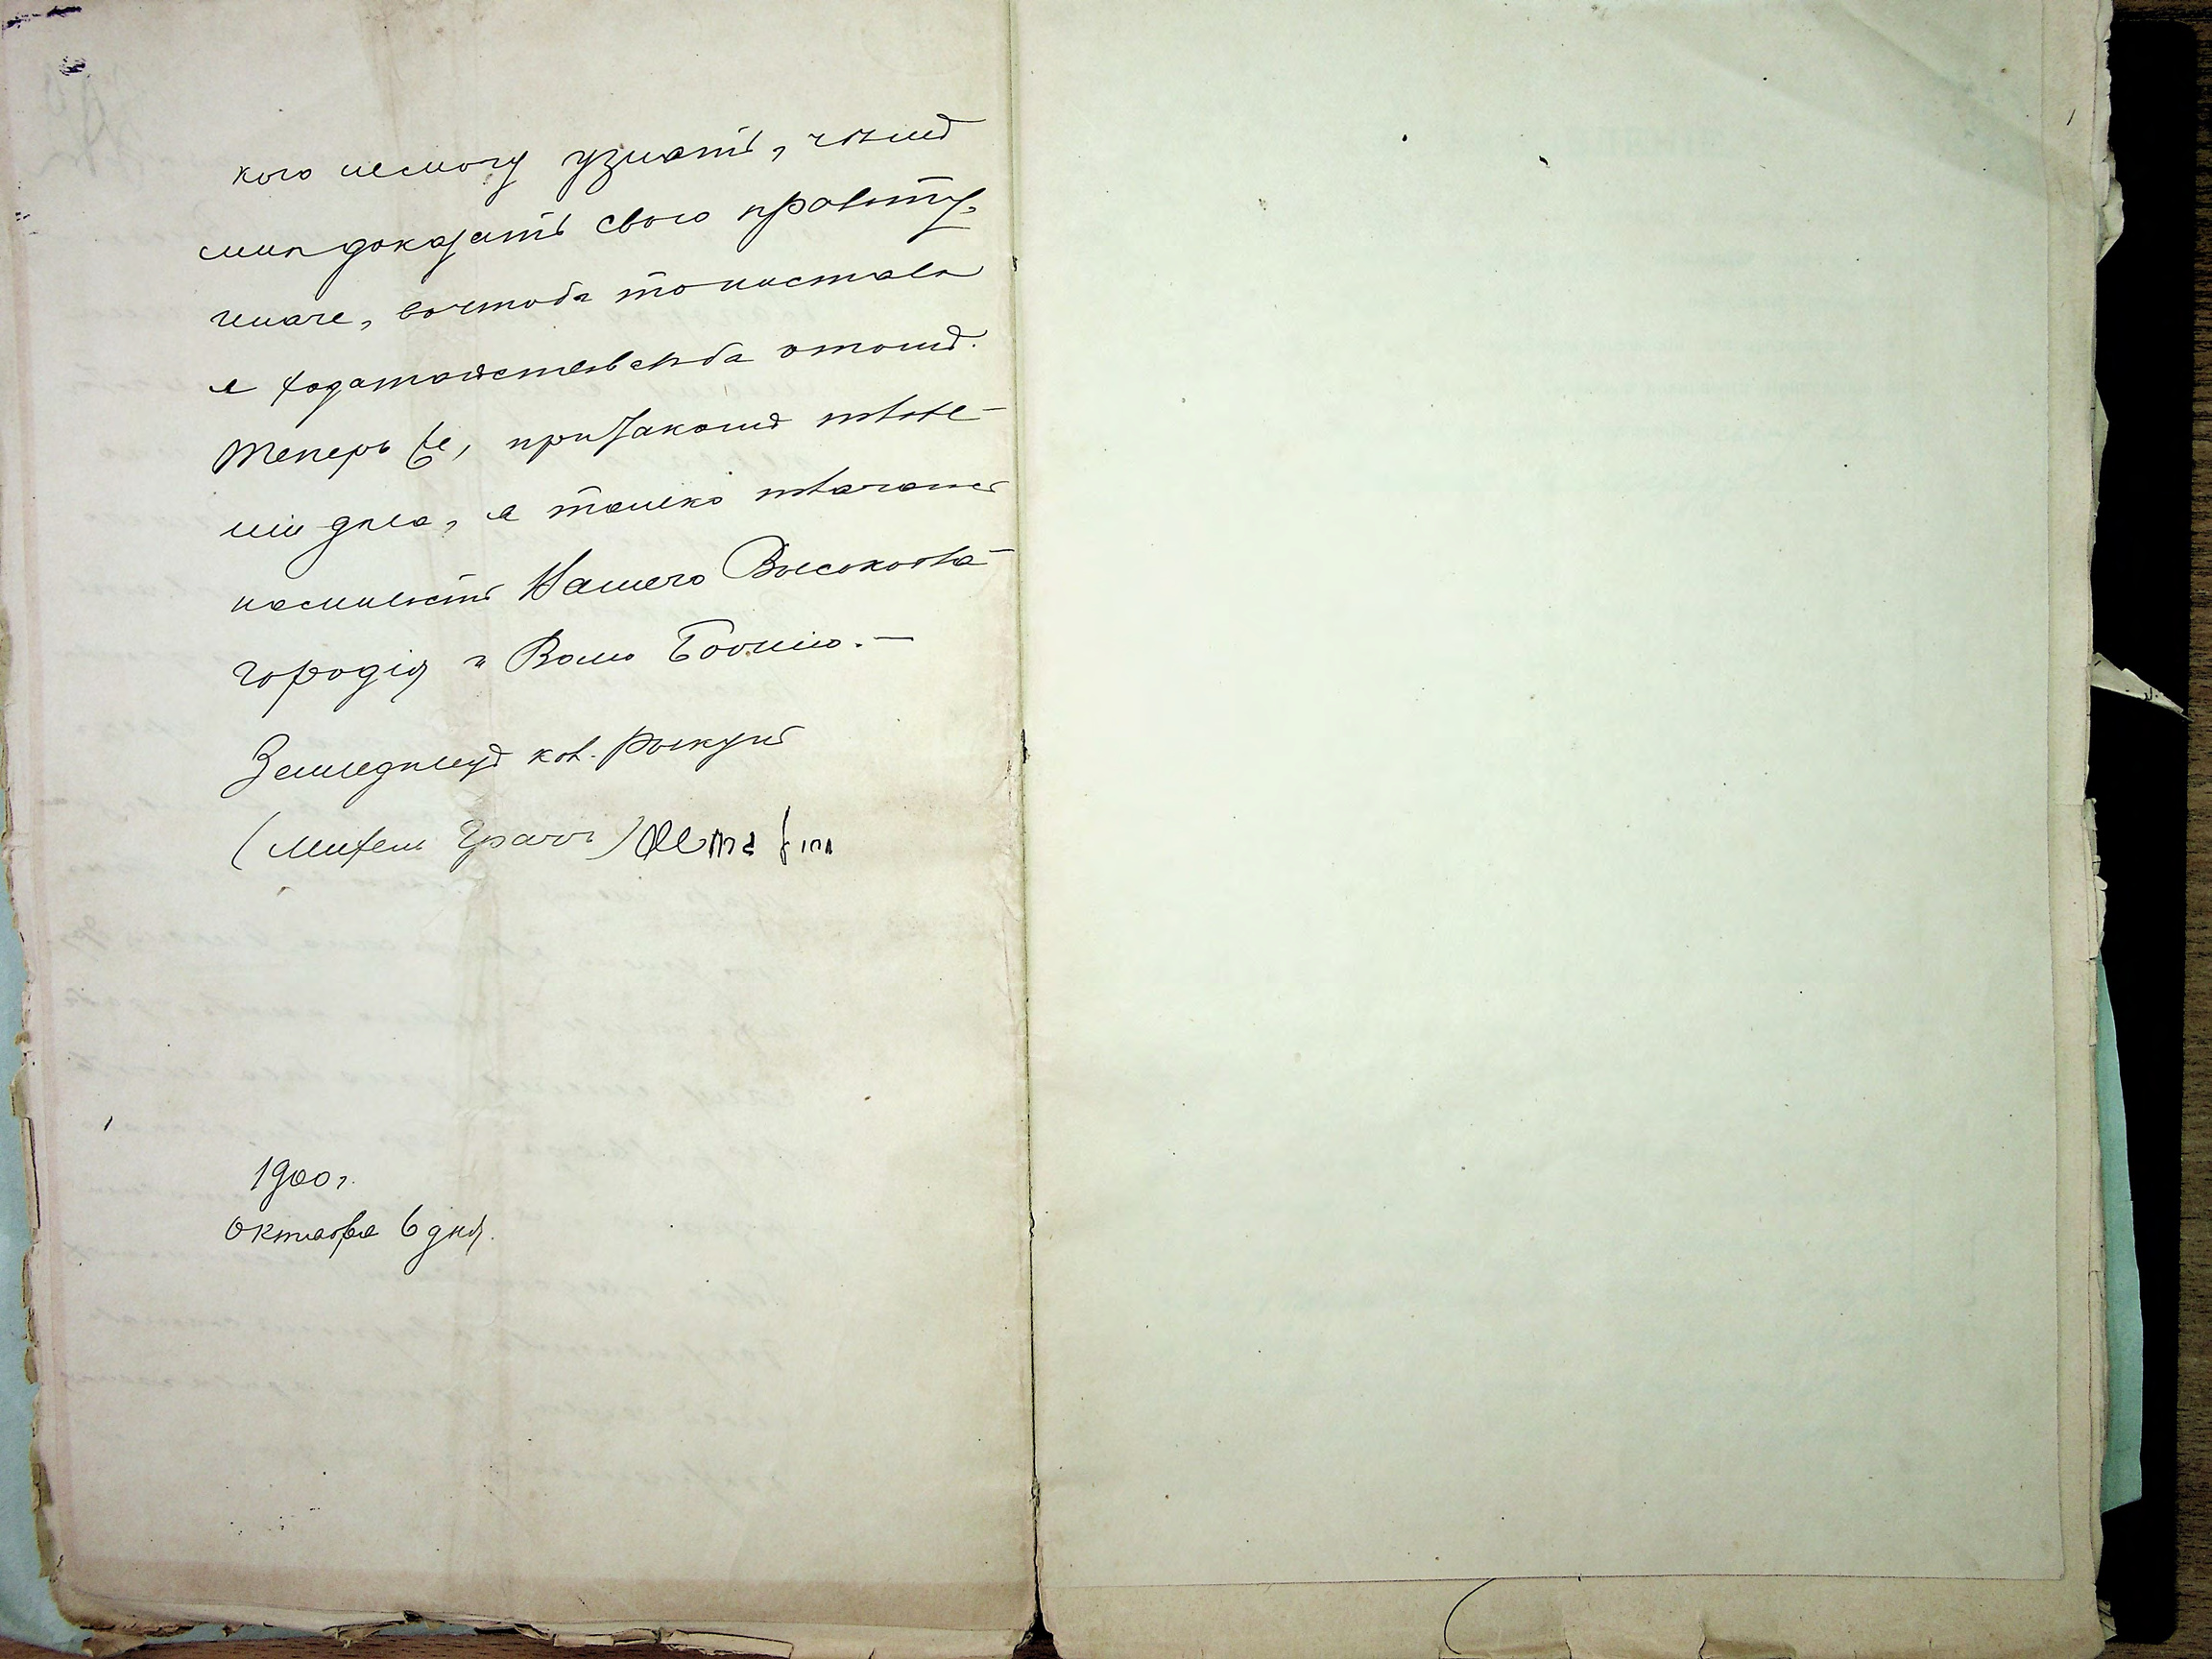 кого немогу узнать, чѣмъ
мнѣ доказать свою правоту
иначе, вочтобы тонистало
я ходатайствовалъ бы отомъ.
Теперь же, при такомъ положе-
ніи дѣла, я только
на милость Вашего Высокобла-
городія и Волю Божію.—
Земледѣлецъ кол.
(Михель
1900 г.
Октября 6 дня.